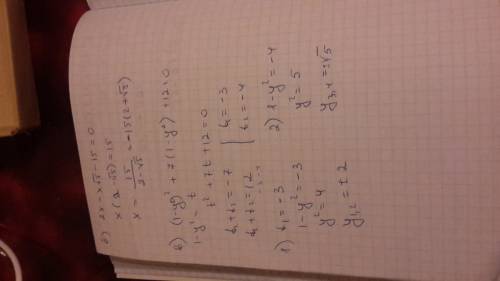 б) 2x - x√5 - 15 = 0
x(2-√5) = 15
x = 15/(2-√5) = -15(2+√5)
в) (1-y²)² + 7(1-y²) + 12 = 0
1-y² = t
t² + 7t + 12 = 0
t₁ + t₂ = -7 { t₁ = -3
t₁ + t₂ = 12 { t₂ = -4
1) t₁ = -3
1 - y² = -3
y² = 4
y₁,₂ = ±2
2) 1 - y² = -4
y² = 5
y₃,₄ = ±√5